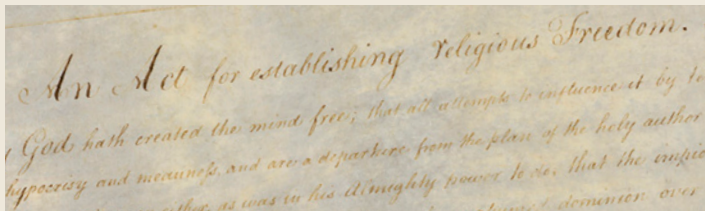 An Act for establishing religious Freedom.
God hath created the mind free; that all attempts to influence it by
hypocrisy and meanness, and are a departure from the plan of the holy author
as was in his Almighty power to do, that the
dominion over